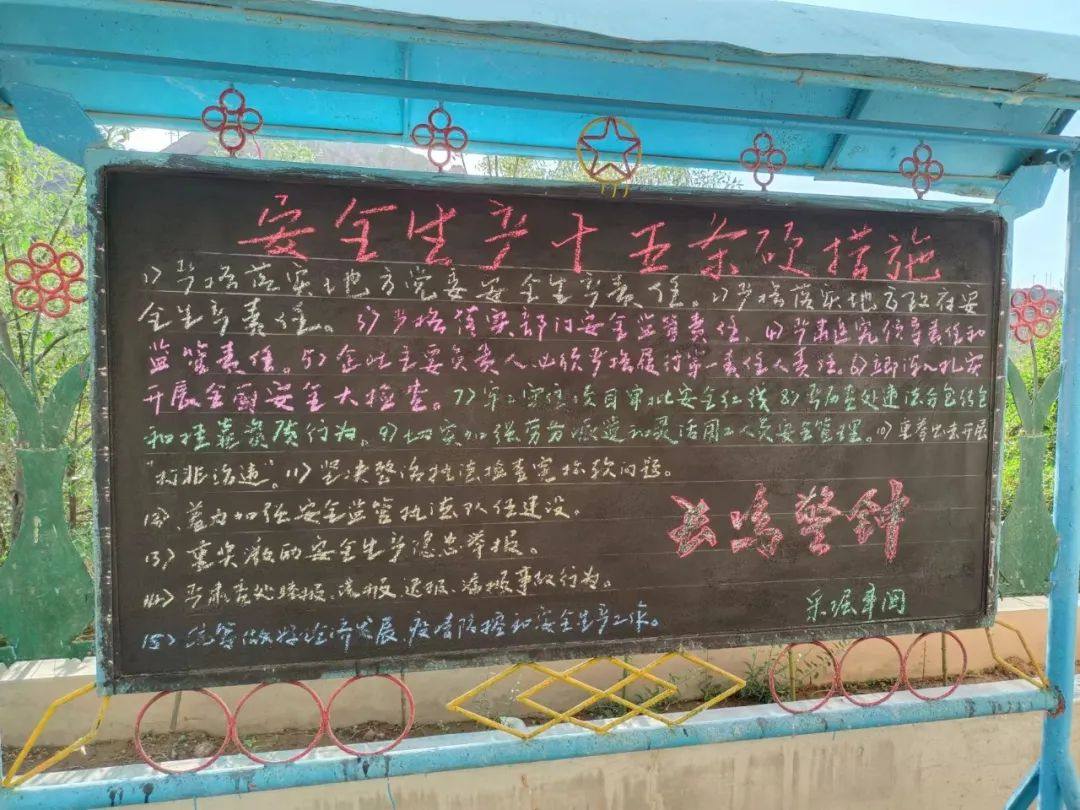 安全生产十五条硬措施
1) 严格落实地方党委安全生产责任。2) 严格落实地方政府安
全生产责任。3) 严格落实部门安全监管责任。4) 严肃追究领导责任和
监管责任。5) 企业主要负责人必须严格履行第一责任人责任。6) 立即深入扎实
开展全面安全大检查。7) 牢牢守住项目审批安全红线 8) 严厉查处违法分包转包
和挂靠资质行为。9) 切实加强劳务派遣和灵活用工人员安全管理。10) 重拳出击开展
"打非治违"。11) 坚决整治执法检查宽松软问题。
12)、着力加强安全监管执法队伍建设。
13) 重奖激励安全生产隐患举报。
14) 严肃查处瞒报、谎报、迟报、漏报事故行为。
15) 统筹做好经济发展 疫情防控和安全生产工作。
长鸣警钟
采掘车间